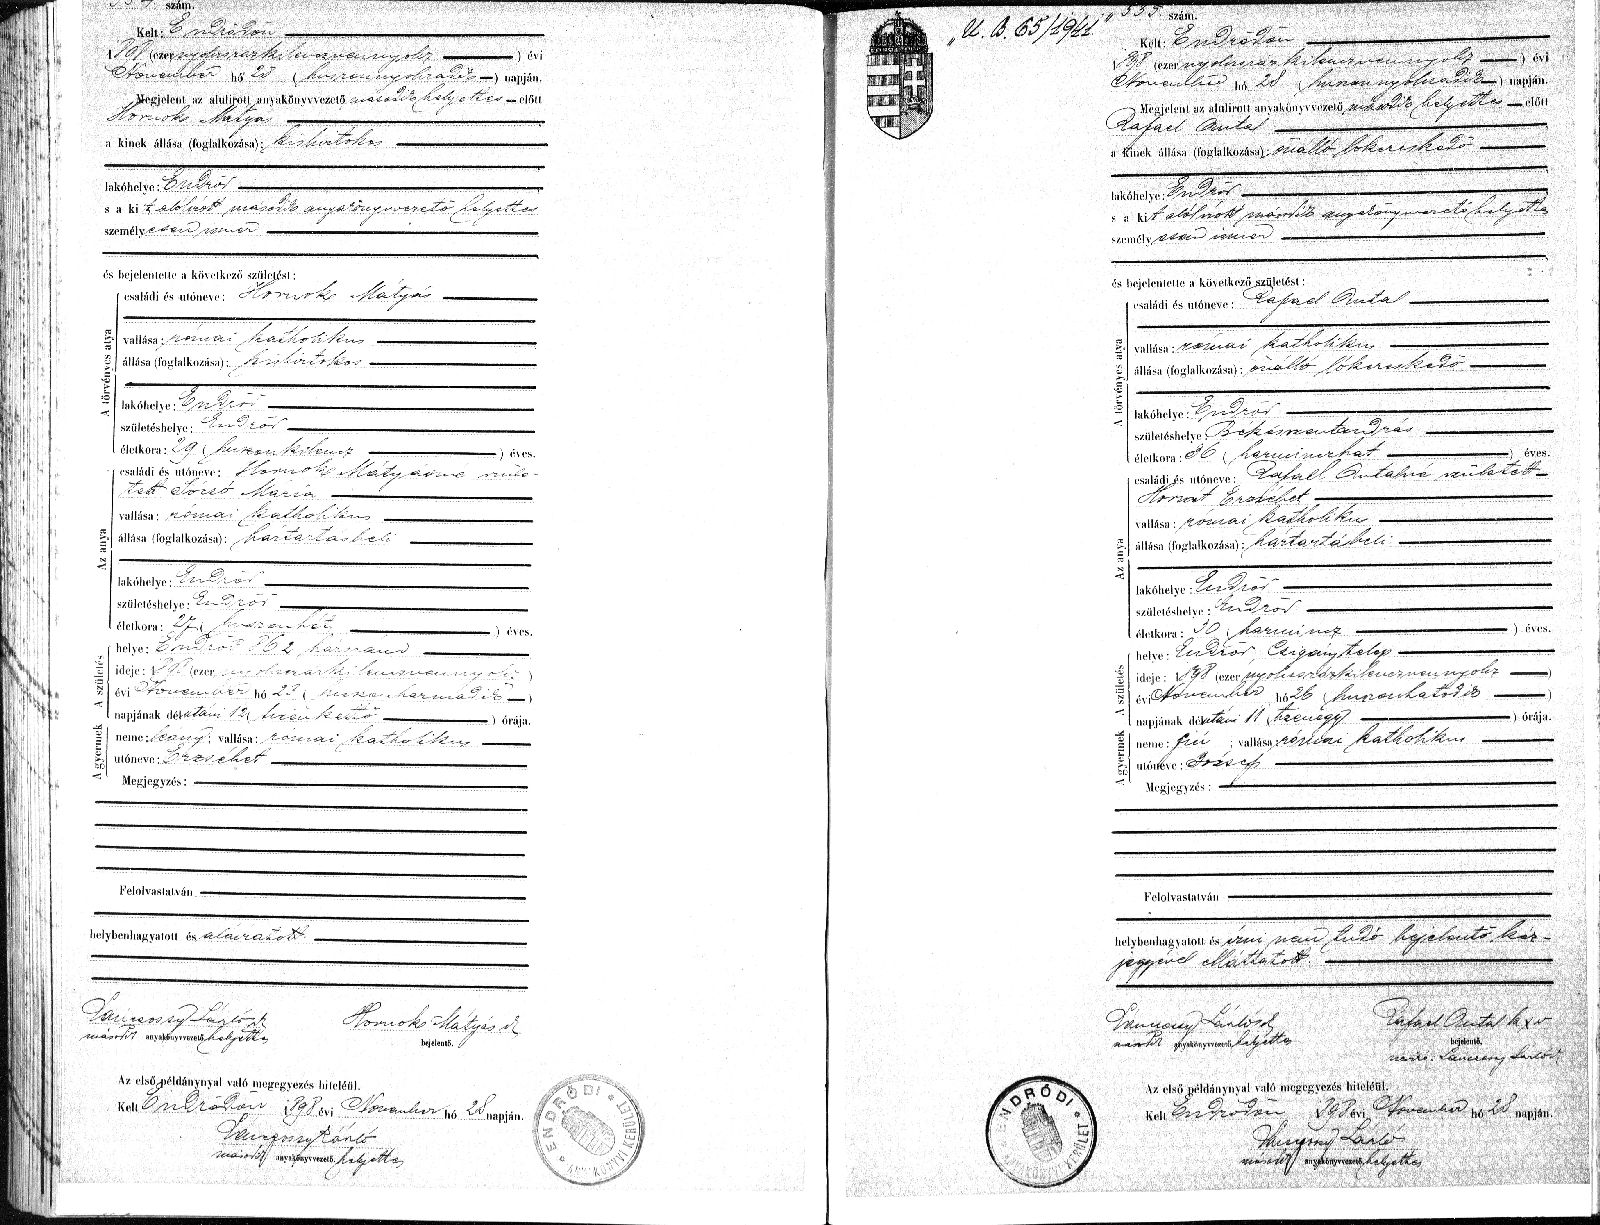 szám.
Kelt: Endrődön
1898 (ezer nyolcszázkilenczvennyolcz ) évi
November hó 28 ( huszonnyolczadik ) napján.
Megjelent az alulirott anyakönyvvezető második helyettes előtt
Hornok Mátyás
a kinek állása (foglalkozása): kisbirtokos
lakóhelye: Endrőd
s a kit alólirott második anyakönyvvezető helyettes
személyesen ismer
és bejelentette a következő születést:
A törvényes atya
családi és utóneve: Hornok Mátyás
vallása: római katholikus
állása (foglalkozása): kisbirtokos
lakóhelye: Endrőd
születéshelye: Endrőd
életkora: 29 ( huszonkilencz ) éves.
Az anya
családi és utóneve: Hornok Mátyásné szüle-
tett Mária
vallása: római katholikus
állása (foglalkozása): háztartásbeli
lakóhelye: Endrőd
születéshelye: Endrőd
életkora: 27 ( huszonhét ) éves.
A születés
helye: Endrőd 862 házszám
ideje: 1898 (ezer nyolczszázkilenczvennyolcz )
évi November hó 23 ( huszonharmadik )
napjának délutáni 12 ( tizenkettő ) órája.
A gyermek
neme: leány; vallása: római katholikus
utóneve: Erzsébet
Megjegyzés:
Felolvastatván
helybenhagyatott és aláiratott.
László
második anyakönyvvezető helyettes
Hornok Mátyás
bejelentő.
Az első példánynyal való megegyezés hiteléül.
Kelt Endrődön 1898 évi November hó 28 napján.
László
második anyakönyvvezető helyettes
ENDRŐDI ANYAKÖNYVI KERÜLET
„U. B. 65/1941"
535 szám.
Kelt: Endrődön
1898 (ezer nyolczszázkilenczvennyolcz ) évi
November hó 28 ( huszonnyolczadik ) napján.
Megjelent az alulirott anyakönyvvezető második helyettes előtt
Rafael Antal
a kinek állása (foglalkozása): önálló lókereskedő
lakóhelye: Endrőd
s a kit alólirott második anyakönyvvezető helyettes
személyesen ismer
és bejelentette a következő születést:
A törvényes atya
családi és utóneve: Rafael Antal
vallása: római katholikus
állása (foglalkozása): önálló lókereskedő
lakóhelye: Endrőd
születéshelye: Békésszentandrás
életkora: 36 ( harminczhat ) éves.
Az anya
családi és utóneve: Rafael Antalné született
Horvát Erzsébet
vallása: római katholikus
állása (foglalkozása): háztartásbeli
lakóhelye: Endrőd
születéshelye: Endrőd
életkora: 30 ( harmincz ) éves.
A születés
helye: Endrőd, Czigánytelep
ideje: 1898 (ezer nyolczszázkilenczvennyolcz )
évi November hó 26 ( huszonhatodik )
napjának délutáni 11 ( tizenegy ) órája.
A gyermek
neme: fiú; vallása: római katholikus
utóneve: József
Megjegyzés:
Felolvastatván
helybenhagyatott és irni nem tudó bejelentő kéz-
jegyével elláttatott.
László
második anyakönyvvezető helyettes
Rafael Antal k x v
bejelentő.
László
Az első példánynyal való megegyezés hiteléül.
Kelt Endrődön 1898 évi November hó 28 napján.
László
második anyakönyvvezető helyettes
ENDRŐDI ANYAKÖNYVI KERÜLET